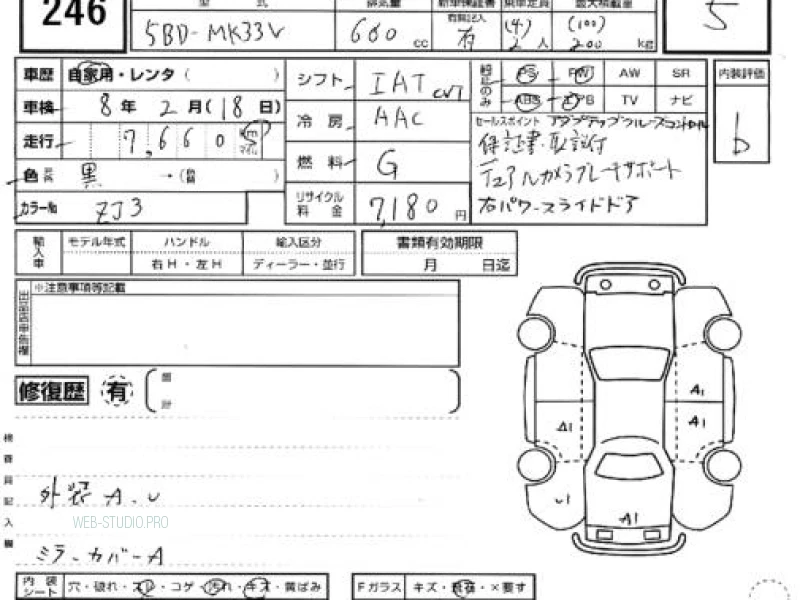 246
型 式
5BD-MK33V
排気量
660 cc
新車保証書
有無記入
有
乗車定員
(4)
2人
最大積載量
(100)
200 kg
5
車歴 自家用・レンタ( )
車検 8年 2月(18日)
走行 7,660 km マイル
色 黒 →(色替 )
カラーNo ZJ3
シフト IAT CVT
冷房 AAC
燃料 G
リサイクル料金 7,180円
純正のみ
PS PW AW SR
ABS エアB TV ナビ
内装評価
b
セールスポイント アダプティブクルーズコントロール
保証書・取説付
デュアルカメラブレーキサポート
右パワースライドドア
輸入車
モデル年式 ハンドル 輸入区分
右H・左H ディーラー・並行
書類有効期限
月 日迄
出品店申告欄
※注意事項等記載
修復歴 有
検査員記入欄
外装 A. U
WEB-STUDIO.PRO
ミラーカバーA
A1
A1
A1
U1
A1
内装シート 穴・破れ・スレ・コゲ・汚れ・キズ・黄ばみ
Fガラス キズ・飛石・×要す